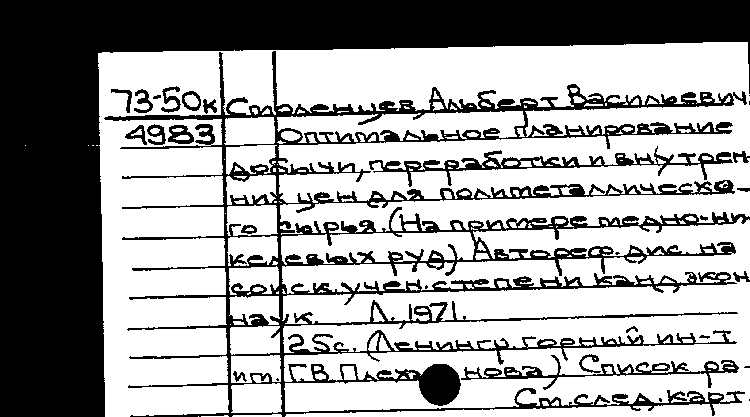 73-50к Смоленцев, Альберт Васильевич
4983 Оптимальное планирование
добычи, переработки и внутрен-
них цен для полиметаллическо-
го сырья. (На примере медно-ни-
келевых руд). Автореф. дис. на
соиск. учен. степени канд. экон.
наук. Л., 1971.
25с. (Ленингр. горный ин-т
им. Г.В. Плеха нова) Список ра-
См. след. карт.